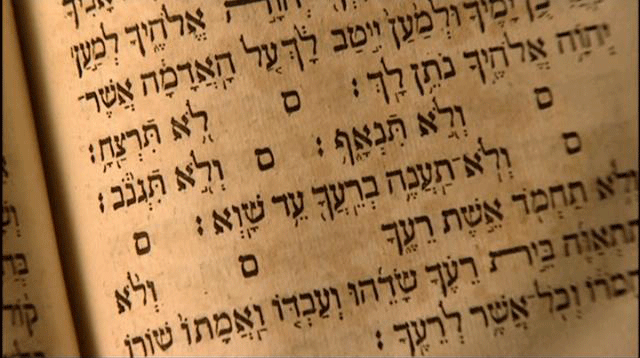 אֱלֹהֶיךָ לְמַעַן
יָמֶיךָ וּלְמַעַן יִיטַב לָךְ עַל הָאֲדָמָה אֲשֶׁר־
יְהוָה אֱלֹהֶיךָ נֹתֵן לָךְ׃ ס לֹא תִּרְצָח׃
ס וְלֹא תִּנְאָף׃ ס וְלֹא תִּגְנֹב׃
ס וְלֹא־תַעֲנֶה בְרֵעֲךָ עֵד שָׁוְא׃ ס
וְלֹא תַחְמֹד אֵשֶׁת רֵעֶךָ ס וְלֹא
תִתְאַוֶּה בֵּית רֵעֶךָ שָׂדֵהוּ וְעַבְדּוֹ וַאֲמָתוֹ שׁוֹרוֹ
וַחֲמֹרוֹ וְכֹל־אֲשֶׁר לְרֵעֶךָ׃